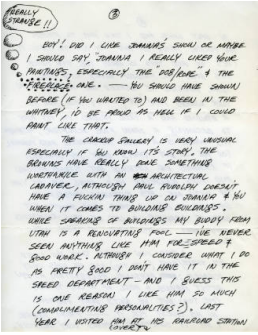 REALLY
STRANGE!!
③
BOY! DID I LIKE JOANNA'S SHOW OR MAYBE
I SHOULD SAY "JOANNA I REALLY LIKED YOUR
PAINTINGS, ESPECIALLY THE "DOG/ROPE" & THE
FIREPLACE ONE. — YOU SHOULD HAVE SHOWN
BEFORE (IF YOU WANTED TO) AND BEEN IN THE
WHITNEY, I'D BE PROUD AS HELL IF I COULD
PAINT LIKE THAT.
THE GALLERY IS VERY UNUSUAL
ESPECIALLY IF YOU KNOW IT'S STORY, THE
HAVE REALLY DONE SOMETHING
WORTHWHILE WITH AN ARCHITECTURAL
CADAVER, ALTHOUGH PAUL RUDOLPH DOESN'T
HAVE A FUCKIN THING UP ON JOANNA & YOU
WHEN IT COMES TO BUILDING BUILDINGS.
WHILE SPEAKING OF BUILDINGS MY BUDDY FROM
UTAH IS A RENOVATING FOOL — I'VE NEVER
SEEN ANYTHING LIKE HIM FOR SPEED &
GOOD WORK. ALTHOUGH I CONSIDER WHAT I DO
AS PRETTY GOOD I DON'T HAVE IT IN THE
SPEED DEPARTMENT — AND I GUESS THIS
IS ONE REASON I LIKE HIM SO MUCH
(COMPLIMENTING PERSONALITIES?). LAST
YEAR I VISITED HIM AT HIS RAILROAD STATION
(OVER)